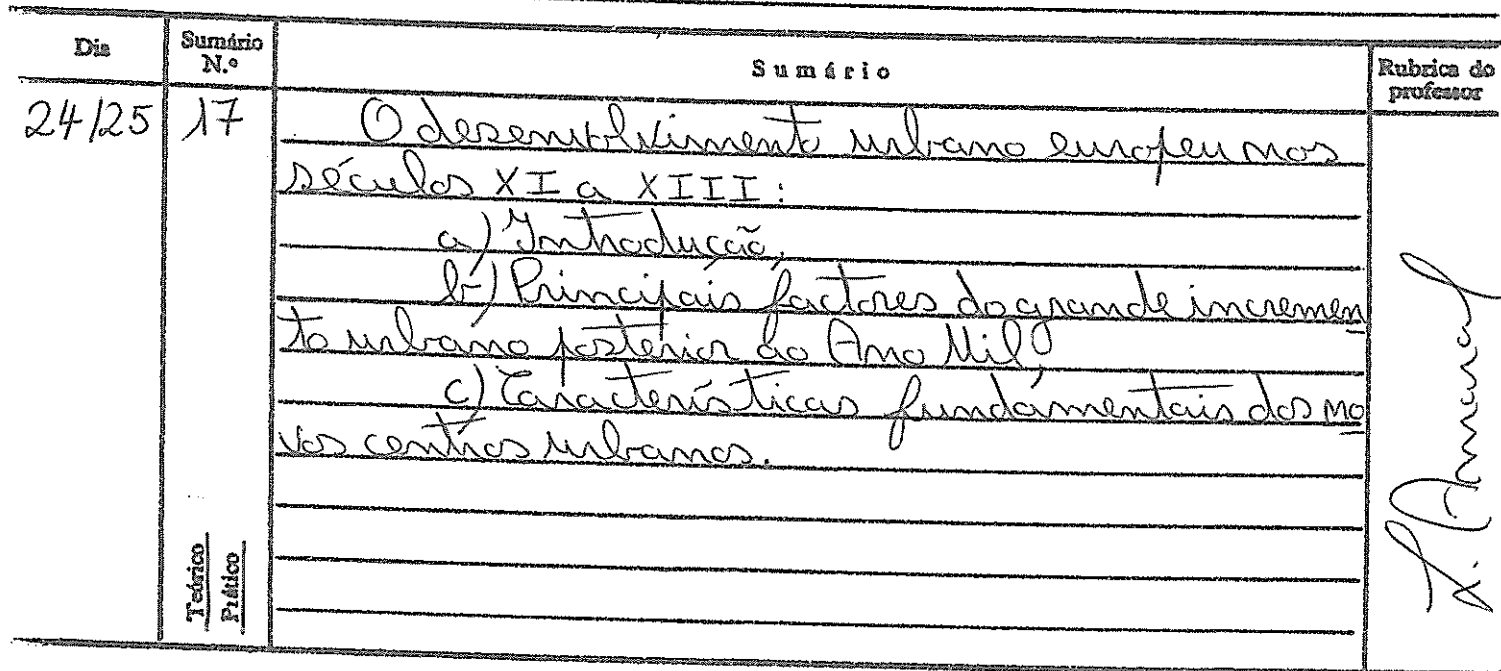 Dia
Sumário
N.º
Sumário
Rubrica do
professor
24/25
17
O desenvolvimento urbano europeu nos
séculos XI a XIII:
a) Introdução,
b) Principais factores do grande incremen
to urbano posterior ao Ano Mil,
c) Características fundamentais dos no
vos centros urbanos.
Teórico
Prático
L. Amaral